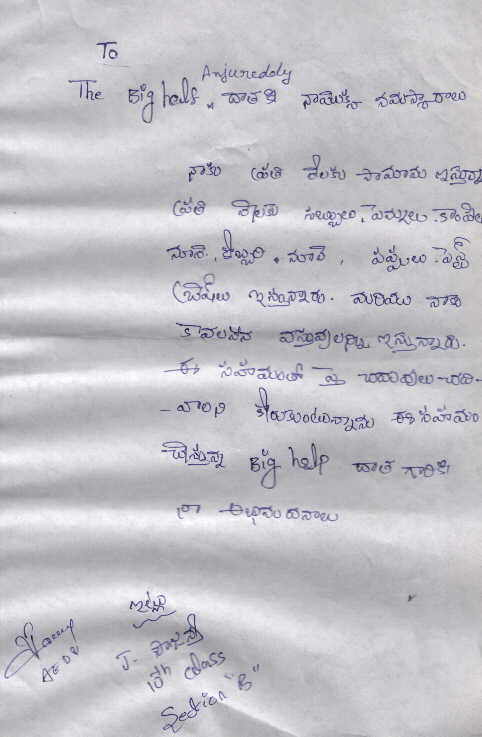 To
Anjureddy
The Big hedf దాతకి నాయొక్క నమస్కారాలు
నాకు ప్రతి నెలకు సామాను ఇస్తున్నా
ప్రతి నెలకు సబ్బులు, పెన్నులు.
నూనె, కొబ్బరి నూనె, పప్పులు. పేస్ట్
బ్రెష్‌లు ఇస్తున్నారు. మరియు నాకు
కావలసిన వస్తువులన్ని ఇస్తున్నారు.
ఈ సహాయంతో పై చదువులు చది-
-వాలని కోరుకుంటున్నాను ఈ సహాయం
చేస్తున్న Big help దాత గారికి
నా అభివందనాలు
ఇట్లు
J.
10th class
Section "B"